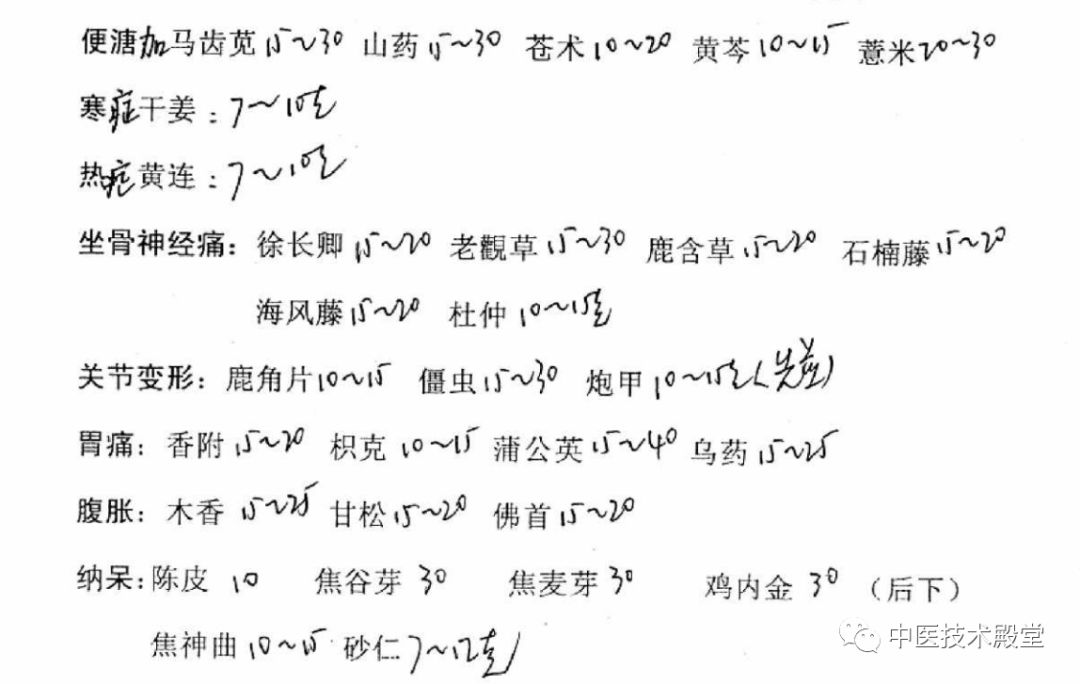 便溏加马齿苋15~30 山药15~30 苍术10~20 黄芩10~15 薏米20~30
寒症干姜：7~10克
热症黄连：7~10克
坐骨神经痛：徐长卿15~20 老觀草15~30 鹿含草15~20 石楠藤15~20
海风藤15~20 杜仲10~15克
关节变形：鹿角片10~15 僵虫15~30 炮甲10~15克(先煎)
胃痛：香附15~20 枳克10~15 蒲公英15~40 乌药15~25
腹胀：木香15~25 甘松15~20 佛首15~20
纳呆：陈皮10 焦谷芽30 焦麦芽30 鸡内金30（后下）
焦神曲10~15 砂仁7~12克
中医技术殿堂